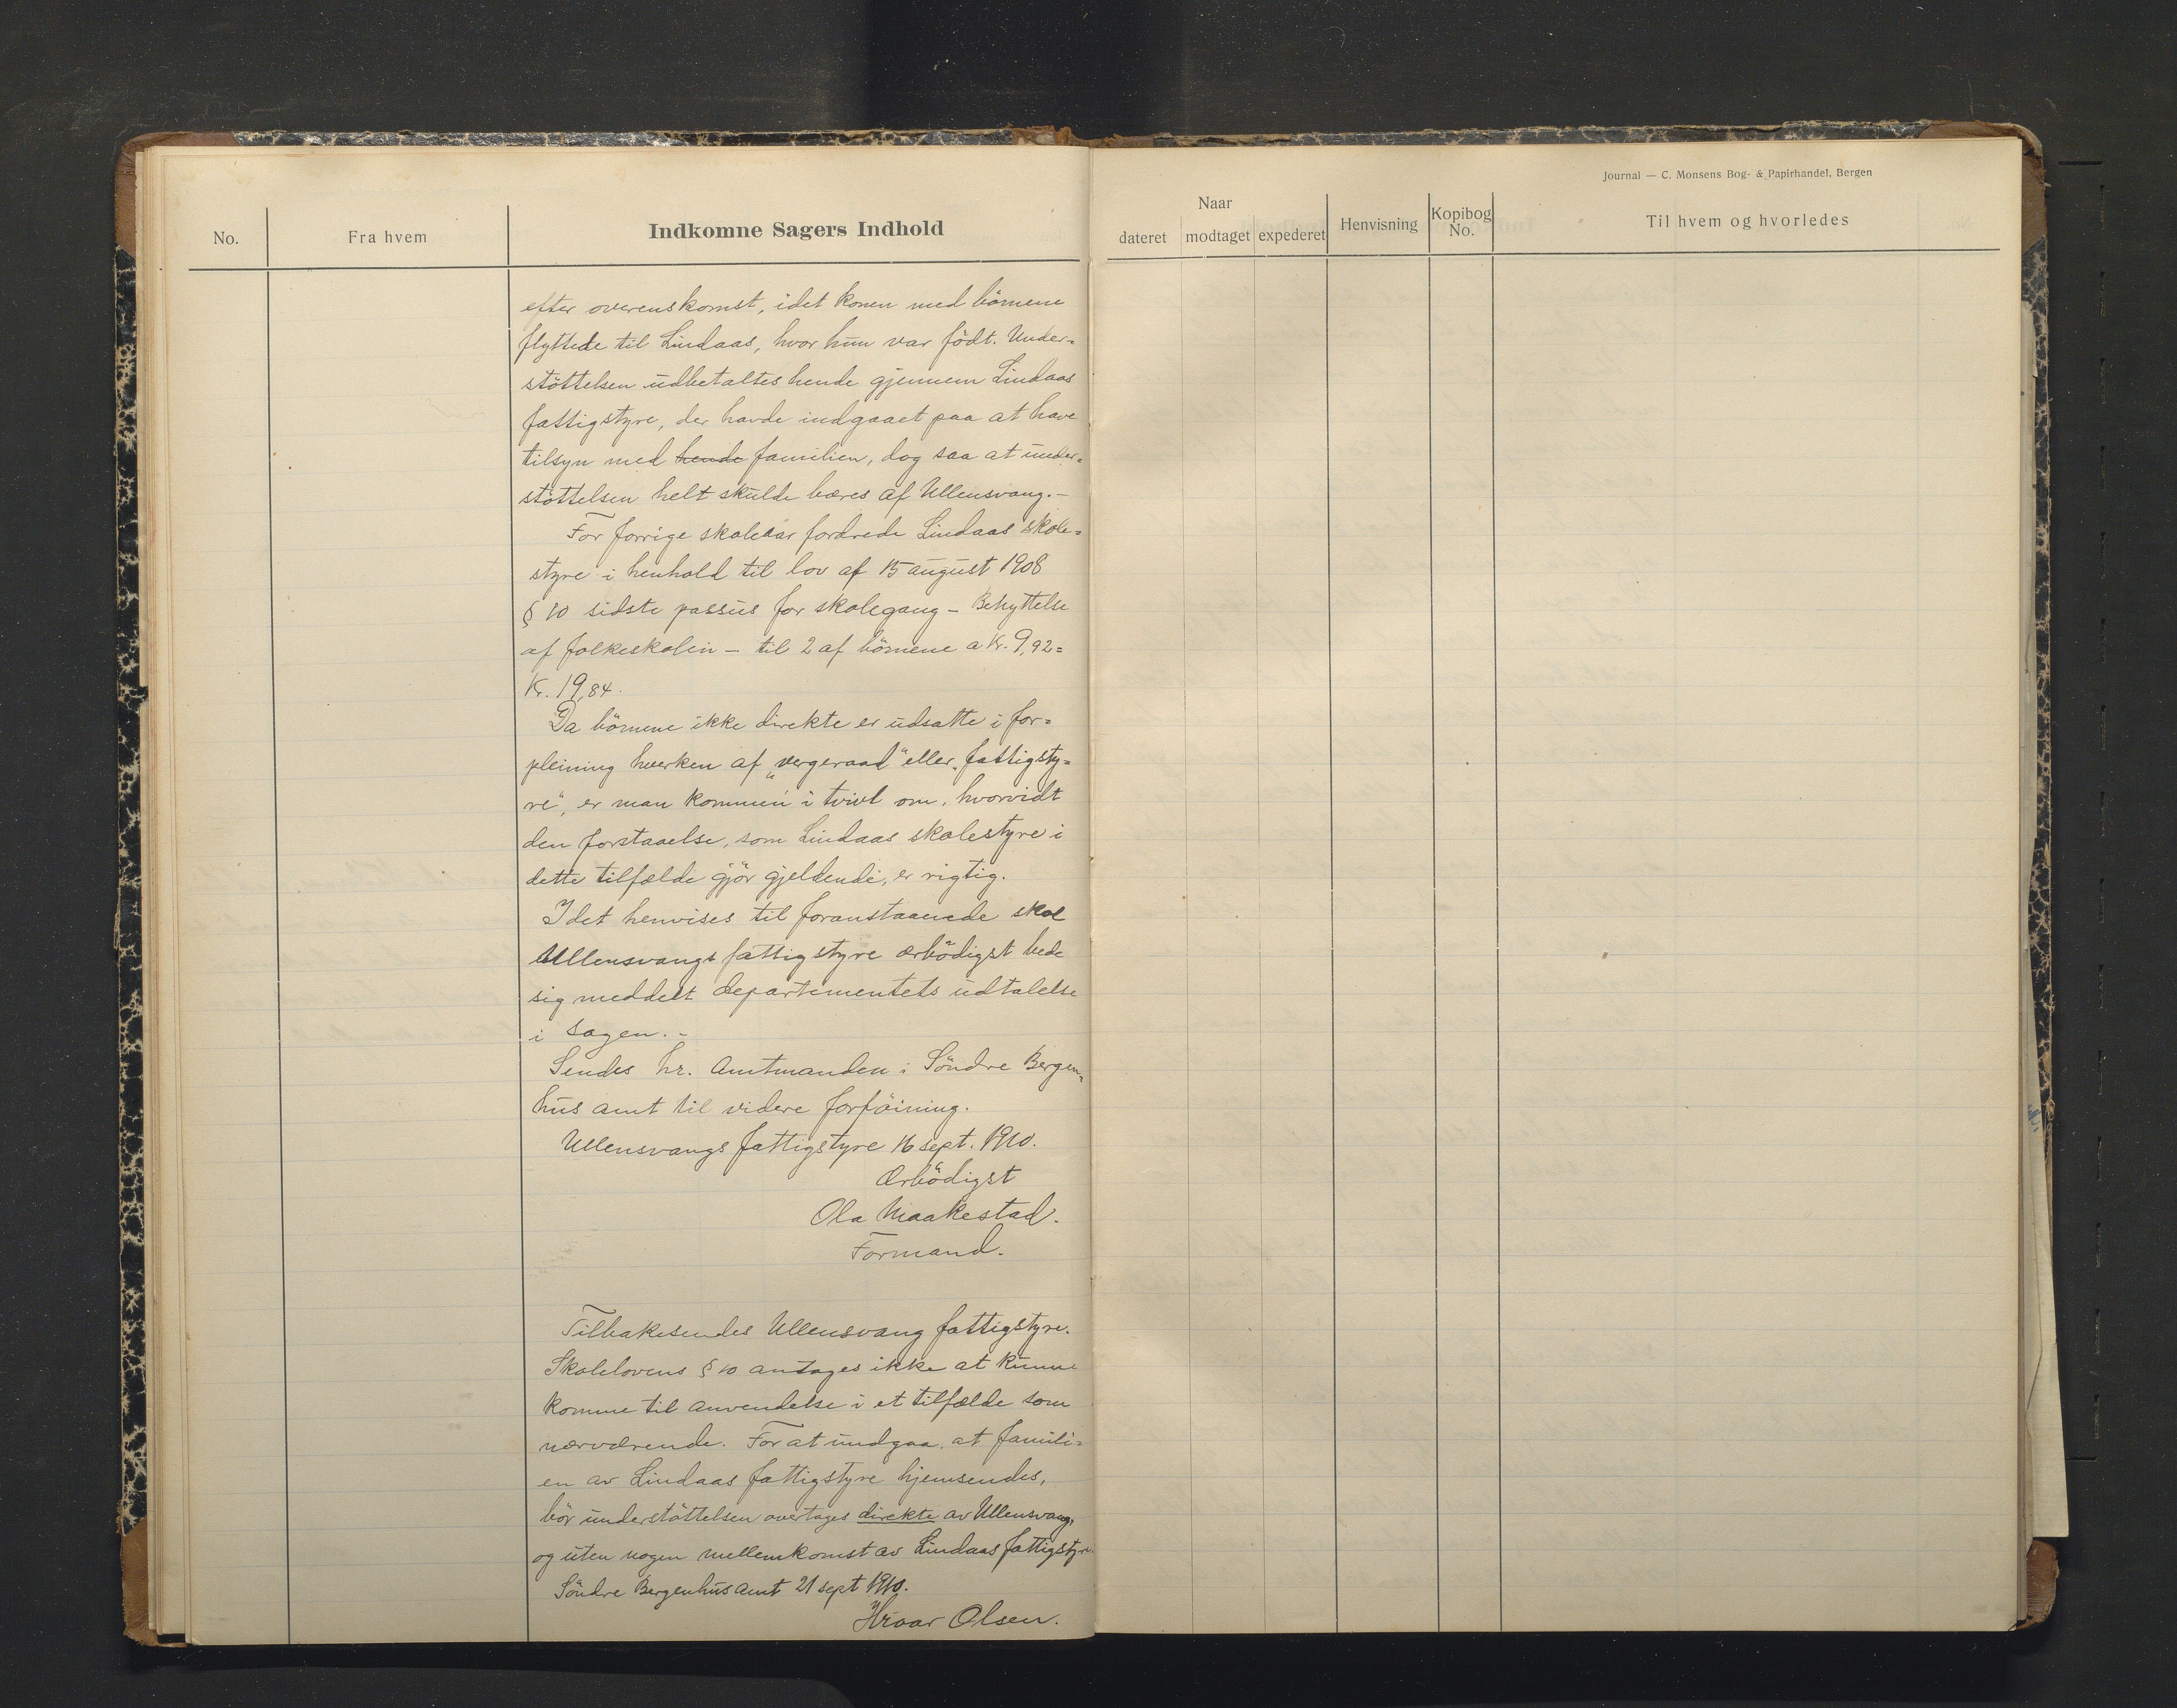 Journal — C. Monsens Bog- & Papirhandel, Bergen
No.
Fra hvem
Indkomne Sagers Indhold
Naar
dateret
modtaget
expederet
Henvisning
Kopibog No.
Til hvem og hvorledes
efter overenskomst, idet konen med börnene
flyttede til Lindaas, hvor hun var födt. Under=
stöttelsen udbetaltes hende gjennem Lindaas
fattigstyre, der havde indgaaet paa at have
tilsyn med hende familien, dog saa at under=
stöttelsen helt skulde bæres af Ullensvang. –
For forrige skoleaar fordrede Lindaas skole=
styre i henhold til lov af 15 august 1908
§ 10 sidste passus for skolegang – Behyttelse
af folkeskolen – til 2 af börnene a Kr. 9,92 =
Kr. 19,84.
Da börnene ikke direkte er udsatte i for=
pleining hverken af „vergeraad" eller „fattigsty=
re", er man kommen i tvivl om, hvorvidt
den forstaaelse, som Lindaas skolestyre i
dette tilfælde gjör gjeldende, er rigtig.
Idet henvises til foranstaaende skal
Ullensvangs fattigstyre ærbödigst bede
sig meddelt departementets udtalelse
i sagen. –
Sendes hr. Amtmanden i Söndre Bergen=
hus amt til videre forföining.
Ullensvangs fattigstyre 16 sept. 1910.
Ærbödigst
Ola Maakestad.
Formand.
Tilbakesendes Ullensvang fattigstyre.
Skolelovens § 10 antages ikke at kunne
komme til anvendelse i et tilfælde som
nærværende. For at undgaa, at famili=
en av Lindaas fattigstyre hjemsendes,
bör understöttelsen overtages direkte av Ullensvang,
og uten nogen mellemkomst av Lindaas fattigstyre
Söndre Bergenhus amt 21 sept 1910.
Hroar Olsen.